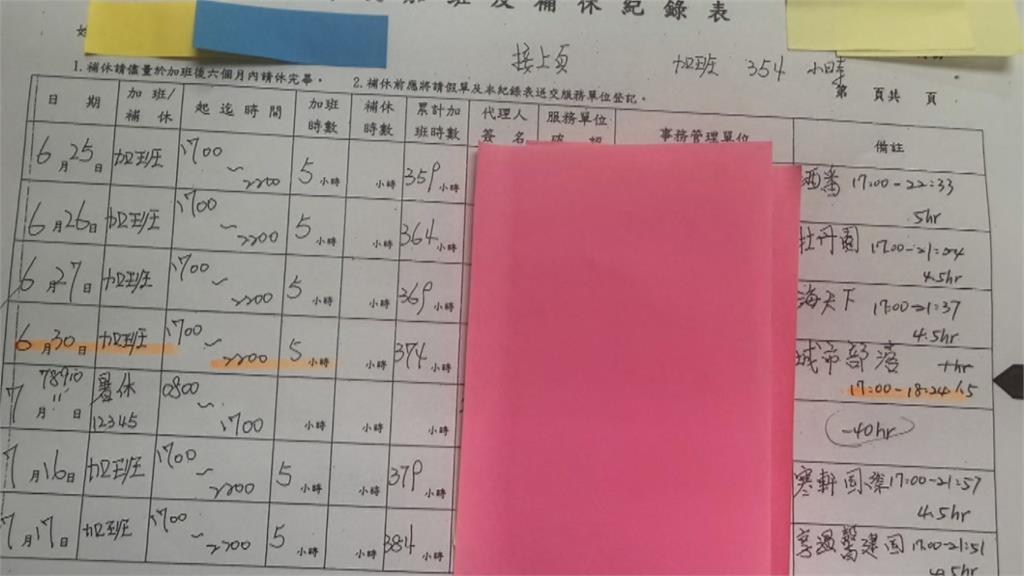 加班及補休紀錄表
接上頁 加班 354 小時
1.補休請儘量於加班後六個月內請休完畢。 2.補休前應將請假單及本紀錄表送交服務單位登記。 第 頁共 頁
日 期 加班/補 休 起迄時間 加班時數 補休時數 累計加班時數 代理人簽 名 服務單位 事務管理單位 備註
6月25日 加班 1700～2200 5小時 小時 359小時 17:00-22:33 5hr
6月26日 加班 1700～2200 5小時 小時 364小時 牡丹園 17:00-21:54 4.5hr
6月27日 加班 1700～2200 5小時 小時 369小時 海天下 17:00-21:37 4.5hr
6月30日 加班 1700～2200 5小時 小時 374小時 城市部落 17:00-18:24
7月78910 11日 暑休 12345 0800～1700 小時 小時 小時 -40hr
7月16日 加班 1700～2200 5小時 小時 379小時 17:00-21:57 4.5hr
7月17日 加班 1700～2200 5小時 小時 384小時 17:00-21:51 4.5hr